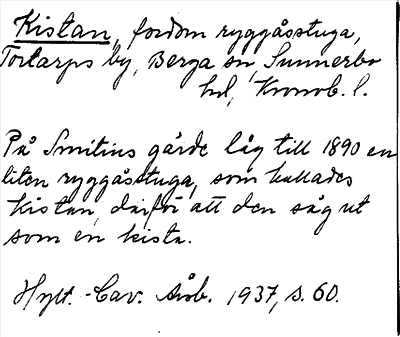 Kistan, fordom ryggåsstuga,
Tortarps by, Berga sn, Sunnerbo
hd, Kronob. l.
På Smitins gårde låg till 1890 en
liten ryggåsstuga, som kallades
Kistan, därför att den såg ut
som en kista.
Hylt.-Cav. Årsb. 1937, s. 60.